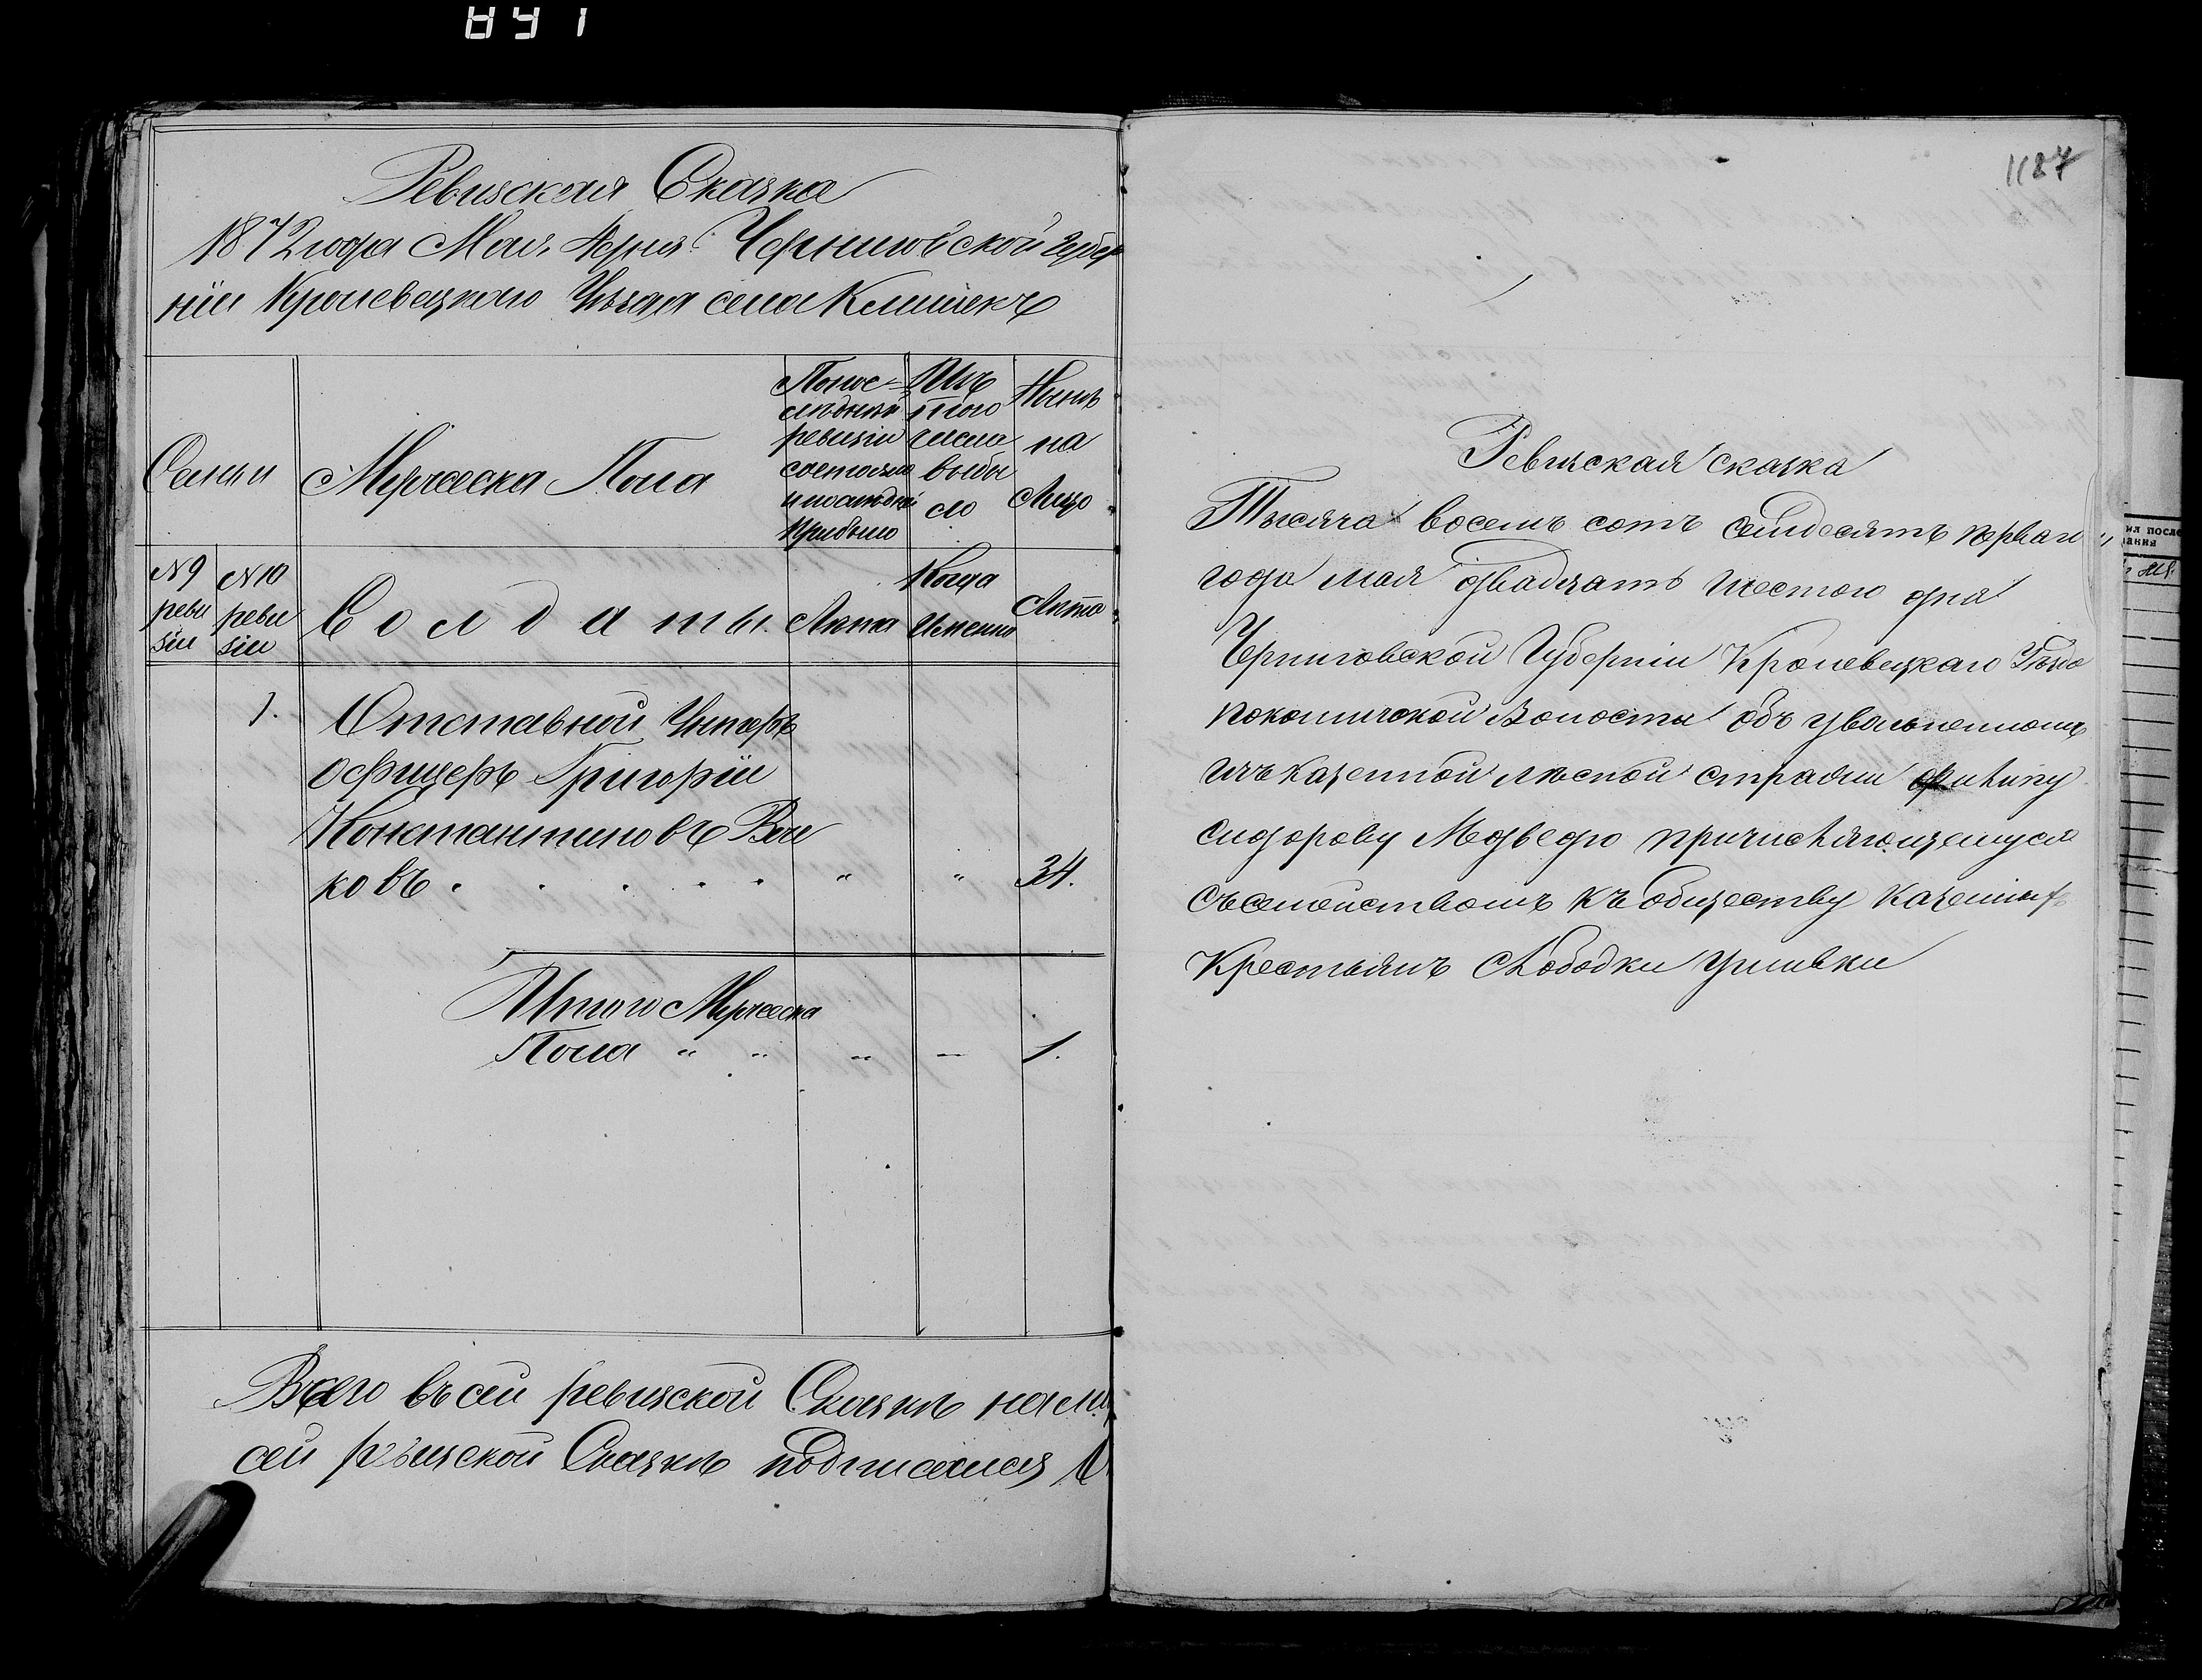 Ревизская Сказка
1872 года Мая 4 дня Черниговской Губер
ніи Кролевецкаго Уѣзда села Клишекъ
Семьи
Мужеска Пола
По пос-
лѣдней
ревизіи
состояло
и послѣ оной
прибыло
Изъ
того
числа
выбы
ло
Нынѣ
на
Лицо
№ 9
реви
зіи
№ 10
реви
зіи
Солдаты
Лѣта
Когда
Именно
Лѣта
1.
Отставной Унтеръ
офицеръ Григорій
Константиновъ
ковъ . . . . . " " 34.
Итого Мужеска
Пола " " " " 1.
Всего въ сей ревизской Сказкѣ на
сей ревизской Сказкѣ
1187
Ревизская сказка
Тысяча восемь сотъ семдесятъ перваго
года мая двадцать шестого дня
Черниговской Губерніи Кролевецкаго Уѣзда
Покошичской Волости объ увольненномъ
изъ казенной лѣсной стражи Филипу
Сидорову Медведю причисляющемуся
съ семействомъ къ обществу казенных
Крестьянъ Слободки